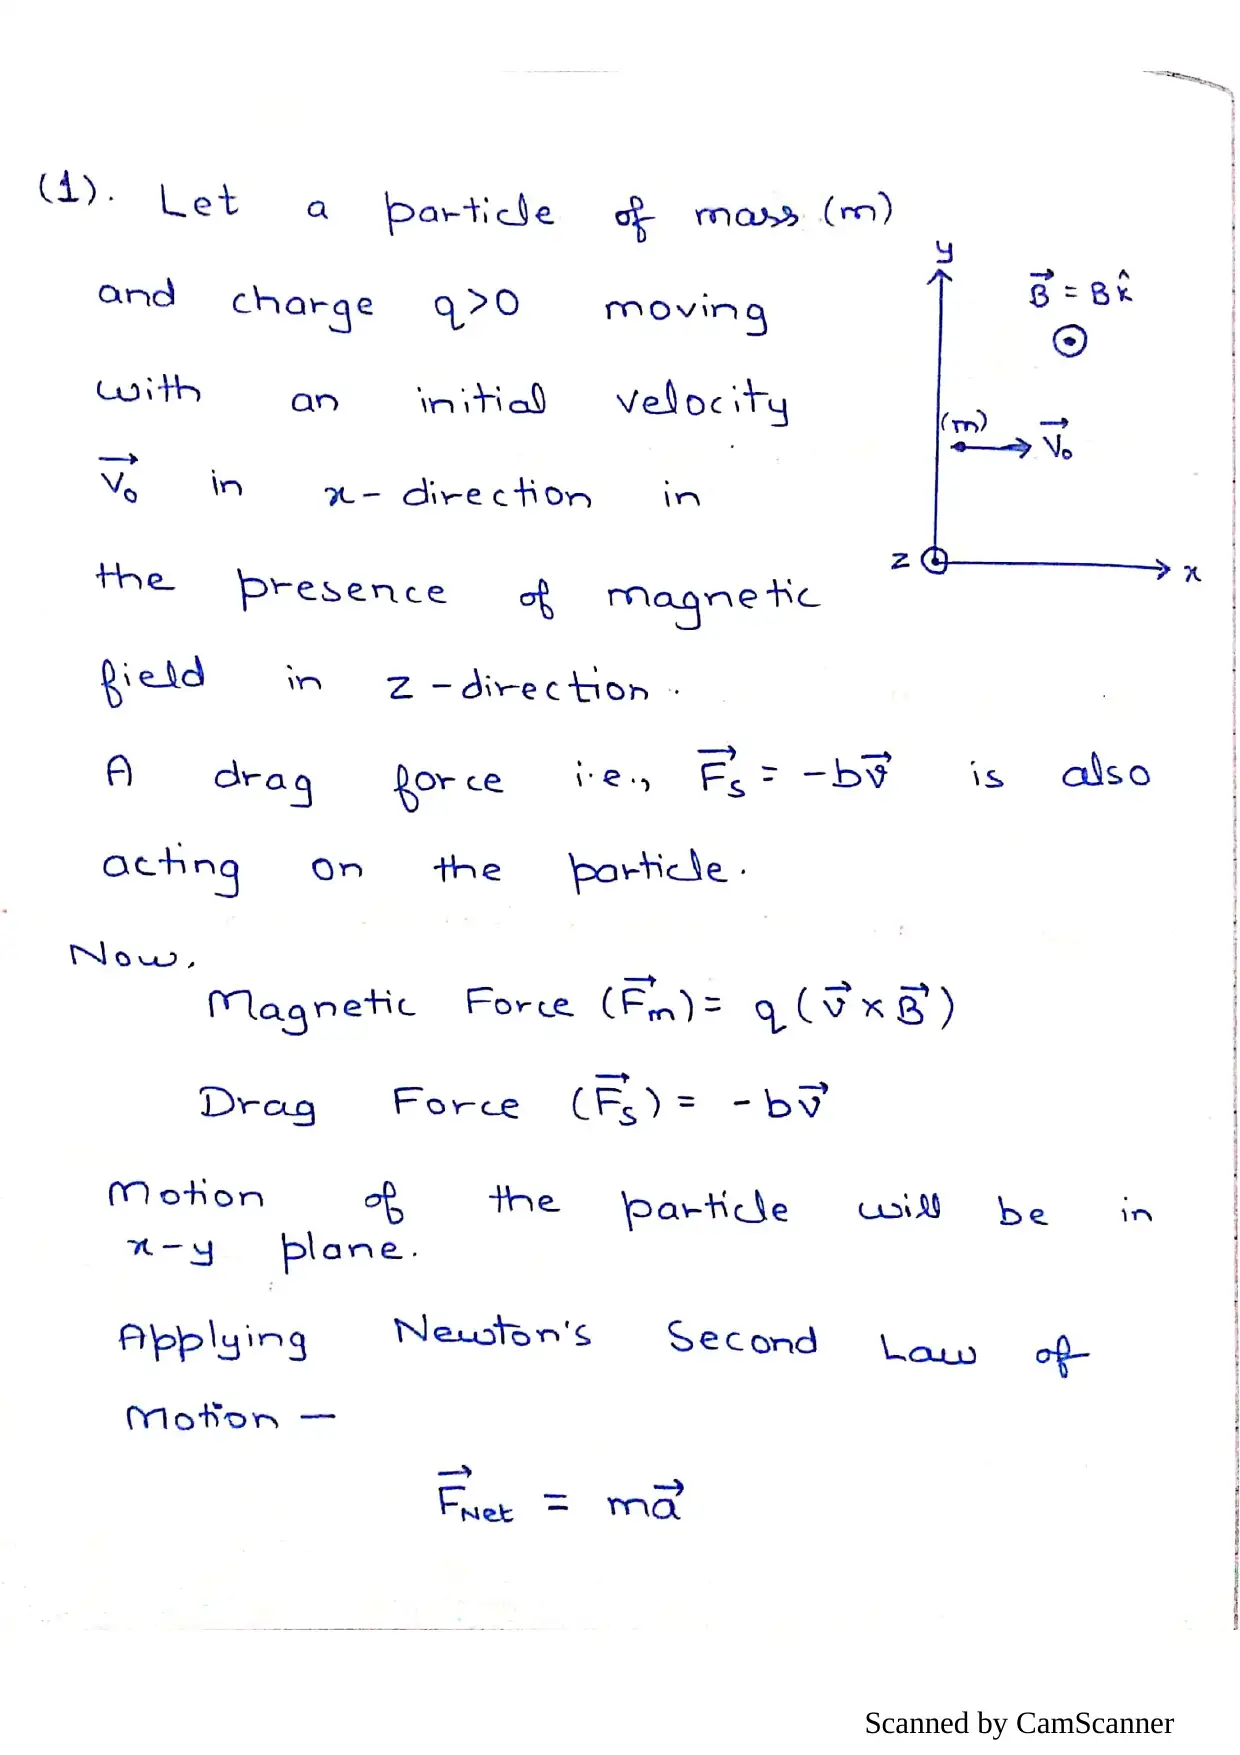 (1). Let a particle of mass (m)
and charge q>0 moving
with an initial velocity
V⃗₀ in x-direction in
the presence of magnetic
field in z-direction.
y
B⃗ = Bk̂
(m)
V⃗₀
z
x
A drag force i.e., F⃗s = -bv⃗ is also
acting on the particle.
Now,
Magnetic Force (F⃗m) = q(v⃗×B⃗)
Drag Force (F⃗s) = -bv⃗
Motion of the particle will be in
x-y plane.
Applying Newton's Second Law of
Motion —
F⃗Net = ma⃗
Scanned by CamScanner